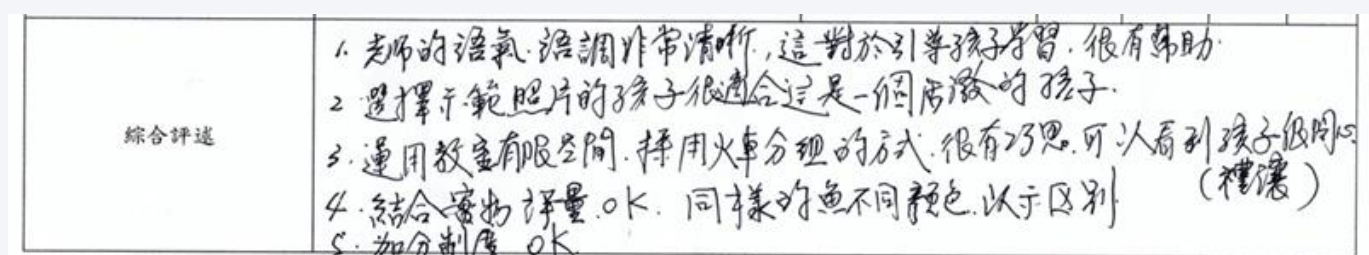 綜合評述
1. 老師的語氣.語調非常清晰,這對於引導孩子學習.很有幫助.
2 選擇示範照片的孩子很適合這是一個活潑的孩子.
3. 運用教室有限空間.採用火車分組的方式.很有巧思.可以看到孩子很同心
(禮讓)
4. 結合實物評量.OK. 同樣的魚不同顏色.以示区別
5. 加分制度 OK.